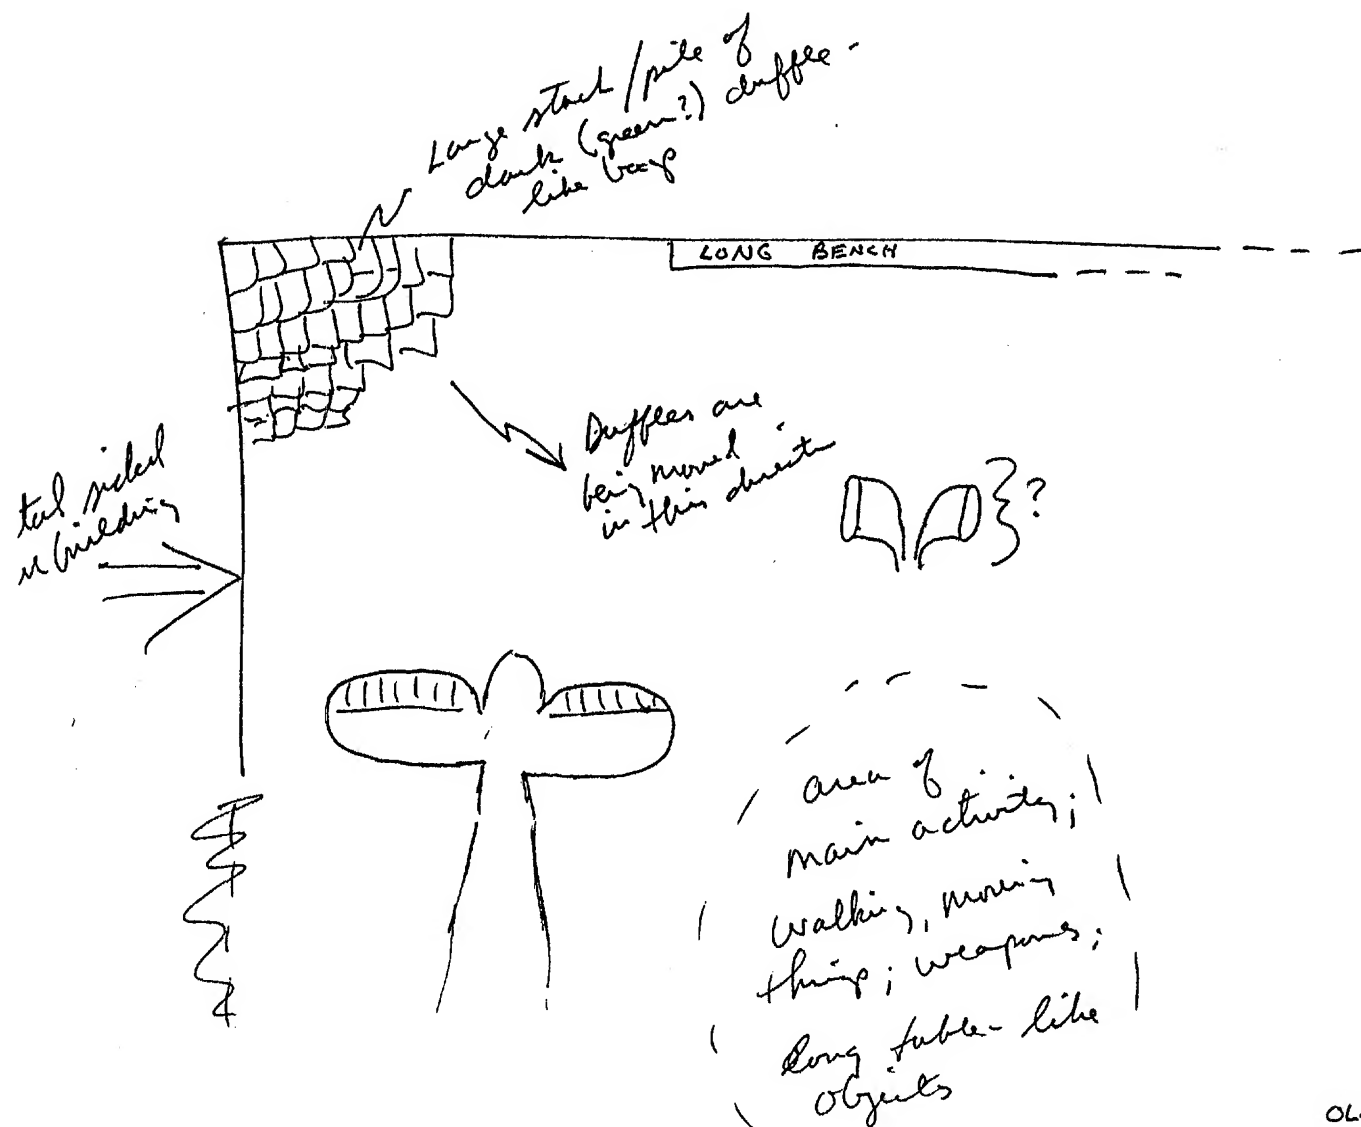 Large stack/pile of
dark (green?) duffle-
like bags
LONG BENCH
Duffles are
being moved
in this direction
sided
building
?
area of
main activity;
walking, moving
things; weapons;
long table-like
objects